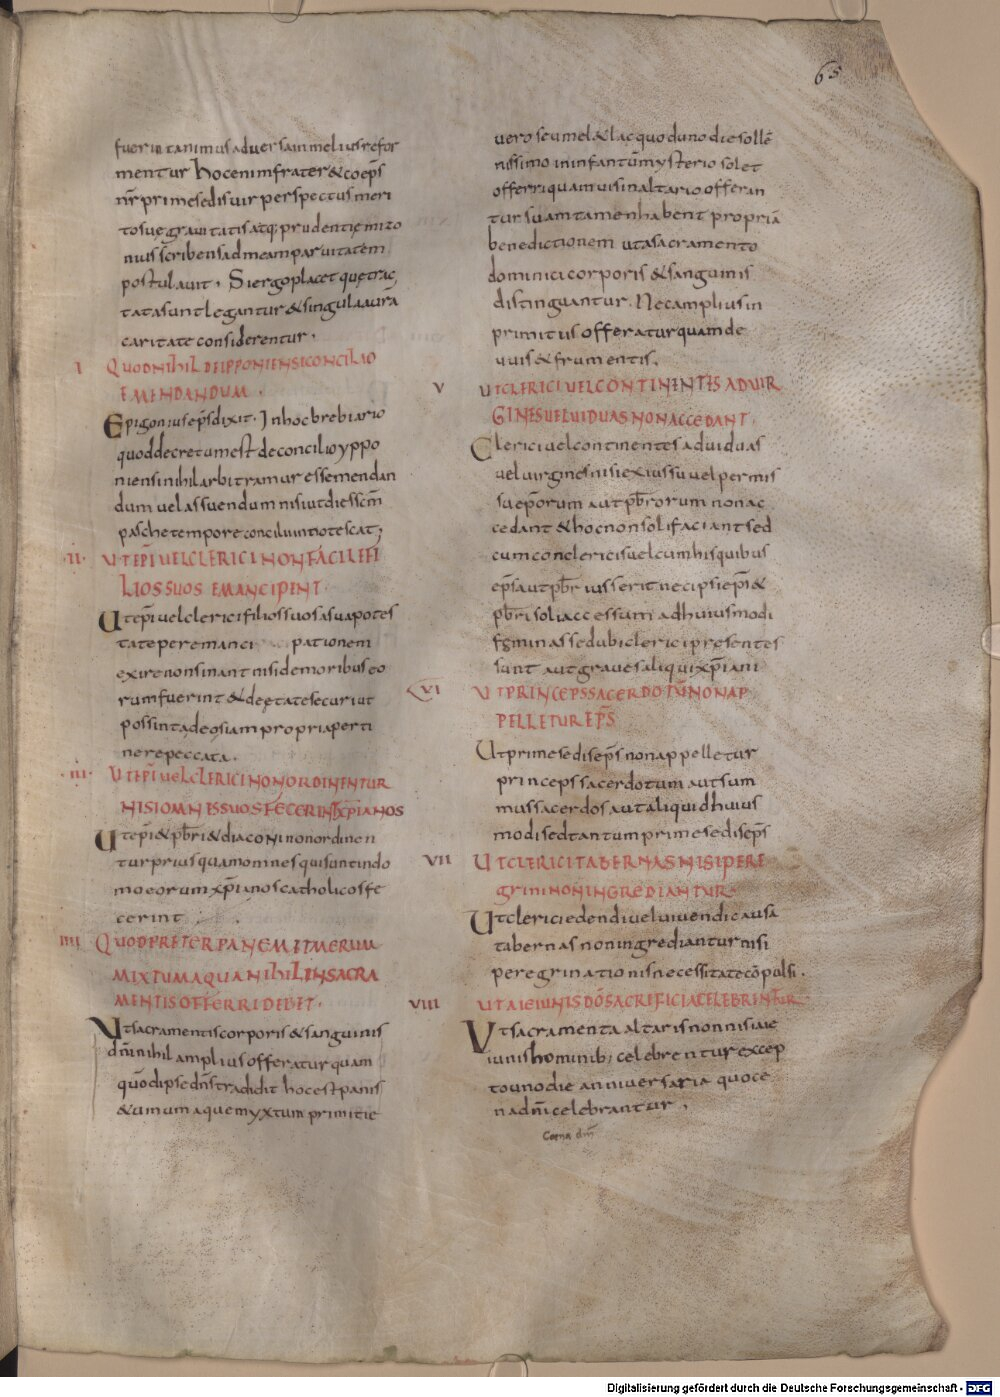 65
fuerin tanimus aduersa in melius refor
mentur hoc enim frater & coep̄s
nr̄ prime sedis uir perspectus meri
tosue grauitatis atq; prudentię mizo
nius scribens ad meam paruitatem
postulauit. Si ergo placet quę trac
tata sunt legantur & singula aurā
caritate considerentur.
I QUOD NIHIL DE IPPONIENSI CONCILIO
EMENDANDUM.
Epigonius ep̄s dixit. In hoc breuiario
quod decretum est de concilio yppo
niensi nihil arbitramur esse mendan
dum uel assuendum nisi ut dies sc̄m
paschę tempore concilii innotescat;
II UT EP̄I UEL CLERICI NON FACILE FI
LIOS SUOS EMANCIPENT.
Ut ep̄i uel clerici filios suos a sua potes
tate per emanci pationem
exire non sinant nisi de moribus eo
rum fuerint & de ętate securi ut
possint ad eos iam propria perti
nere peccata.
III UT EP̄I UEL CLERICI NON ORDINENTUR
NISI OMNES SUOS FECERINT XP̄IANOS
Ut ep̄i & pb̄ri & diaconi non ordinen
tur prius quam omnes qui sunt in do
mo eorum xp̄ianos catholicos fe
cerint
IIII QUOD PRETER PANEM ET MERUM
MIXTUM AQUA NIHIL IN SACRA
MENTIS OFFERRI DEBET.
Ut sacramentis corporis & sanguinis
dn̄i nihil amplius offeratur quam
quod ipse dn̄s tradidit hoc est panis
& uinum aque myxtum primitie
uero seu mel & lac quod uno die sollē
nissimo in infantū mysterio solet
offerri quamuis in altario offerin
tur suam tamen habent propriā
benedictionem ut a sacramento
dominici corporis & sanguinis
distinguantur. Nec amplius in
primitiis offeratur quam de
uuis & frumentis.
V UT CLERICI UEL CONTINENTES AD UIR
GINES UEL UIDUAS NON ACCEDANT.
Clerici uel continentes ad uiduas
uel uirgines nisi ex iussu uel permis
su ep̄orum aut pb̄rorum non ac
cedant & hoc non soli faciant sed
cum conclericis uel cum his quibus
ep̄s aut pb̄r iusserit nec ipsi ep̄i &
pb̄ri soli accessum ad huiusmodi
feminas sed ubi clerici presentes
sunt aut graues aliqui xp̄iani
VI UT PRINCEPS SACERDOTŪ NON AP
PELLETUR EP̄S
Ut prime sedis ep̄s non appelletur
princeps sacerdotum aut sum
mus sacerdos aut aliquid huius
modi sed tantum prime sedis ep̄s
VII UT CLERICI TABERNAS NISI PERE
GRINI NON INGREDIANTUR.
Ut clerici edendi uel uiuendi causa
tabernas non ingrediantur nisi
peregrinationis necessitate cōpulsi.
VIII UT A IEIUNIS D̄O SACRIFICIA CELEBRENTUR
Ut sacramenta altaris non nisi a ie
iunis hominib; celebrentur excep
to uno die anniuersaria quo ce
na dn̄i celebrantur.
Coena dn̄i
Digitalisierung gefördert durch die Deutsche Forschungsgemeinschaft - DFG